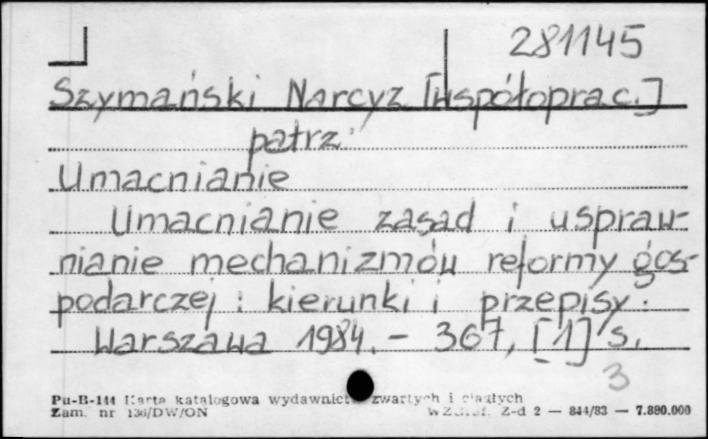 281145
Szymański Narcyz [współoprac.]
patrz:
Umacnianie
Umacnianie zasad i uspraw-
nianie mechanizmów reformy gos-
podarczej : kierunki i przepisy.
Warszawa 1984. - 367, [1] s.
3
Pu-B-144 Karta katalogowa wydawnict zwartych i ciągłych
Zam. nr 136/DW/ON Z-d 2 — 844/83 — 7.880.000